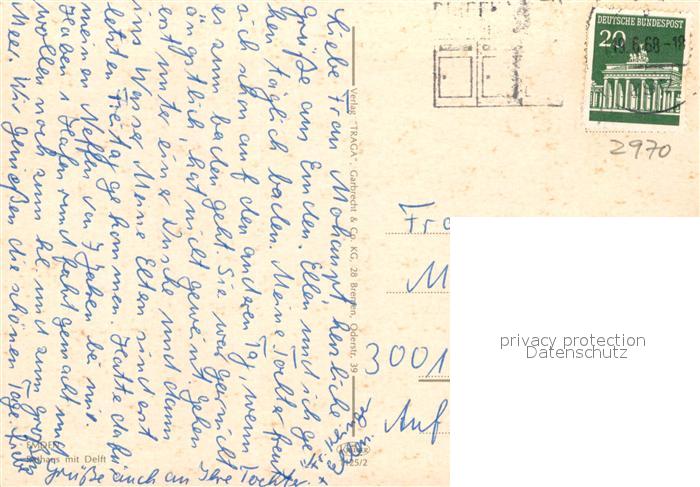 Liebe Frau Mohaupt, herzliche
Grüße aus Emden. Ellen und ich ge-
hen täglich baden. Meine Tochter freut
sich schon auf den anderen Tag, wenn
es zum baden geht. Sie war gar nicht
ängstlich, hat nicht geweint, gehen
erst unter eine Dusche und dann
ins Wasser. Meine Eltern sind erst
letzten Freitag gekommen. Hatte dafür
meinen Neffen von 7 Jahren bei mir.
Haben 1 Hafenrundfahrt gemacht und
wollen noch zum und zum großen
Meer. Wir genießen die schönen Tage.
Grüße auch an Ihre Tochter
Verlag "TRAGA", Garbrecht & Co. KG, 28 Bremen, Oderstr. 39
EMDEN
Rathaus mit Delft
125/2
DEUTSCHE BUNDESPOST
20
6.68-18
2970
Fra
M
3001
Auf
privacy protection
Datenschutz